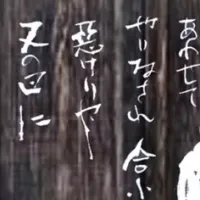 あわせて
やりなされ 合
惡けりや
又の日に